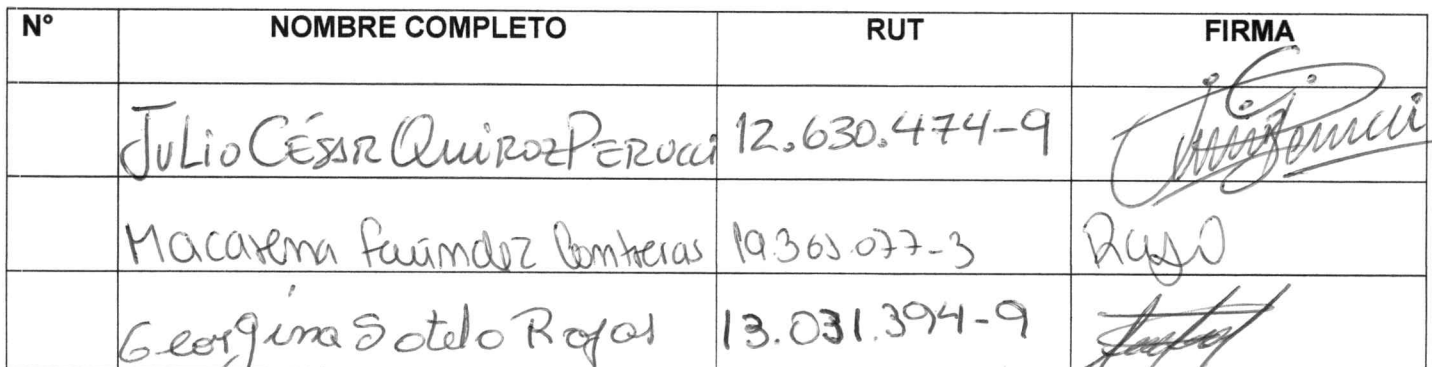 N° NOMBRE COMPLETO RUT FIRMA
Julio César Quiroz Perucci 12.630.474-9
Macarena Faúndez Contreras 19.365.077-3
Georgina Sotelo Rojas 13.031.394-9